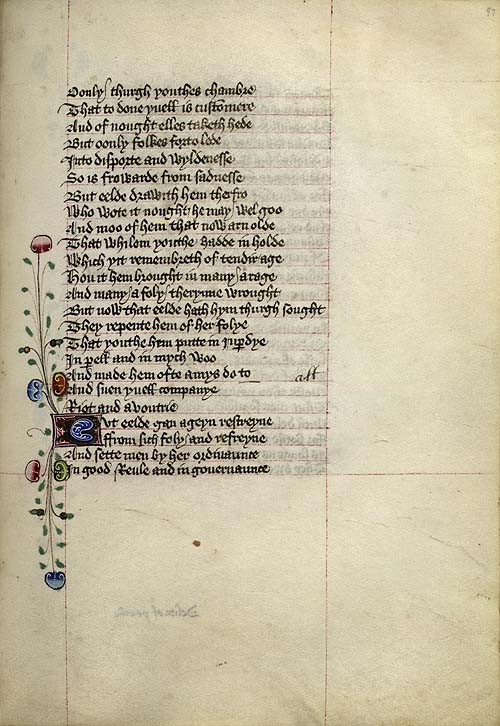 Oonly thurgh youthes chambre
That to done yuell is customere
And of nought elles taketh hede
But oonly folkes forto lede
Into disporte and wyldenesse
So is frowarde from sadnesse
But eelde drawith hem therfro
Who wote it nought he may wel goo
And moo of hem that now arn olde
That whilom youthe hadde in holde
Which yit remembreth of tendir age
Hou it hem brought in many a rage
And many a foly therynne wrought
But now that eelde hath hym thurgh sought
They repente hem of her folye
That youthe hem putte in Juperdye
In perell and in mych woo
And made hem ofte amys do to
And suen yuell companye
Riot and avoutrie
But eelde gan ageyn restreyne
ffrom sich foly and refreyne
And sette men by her ordinaunce
In good Reule and in governaunce